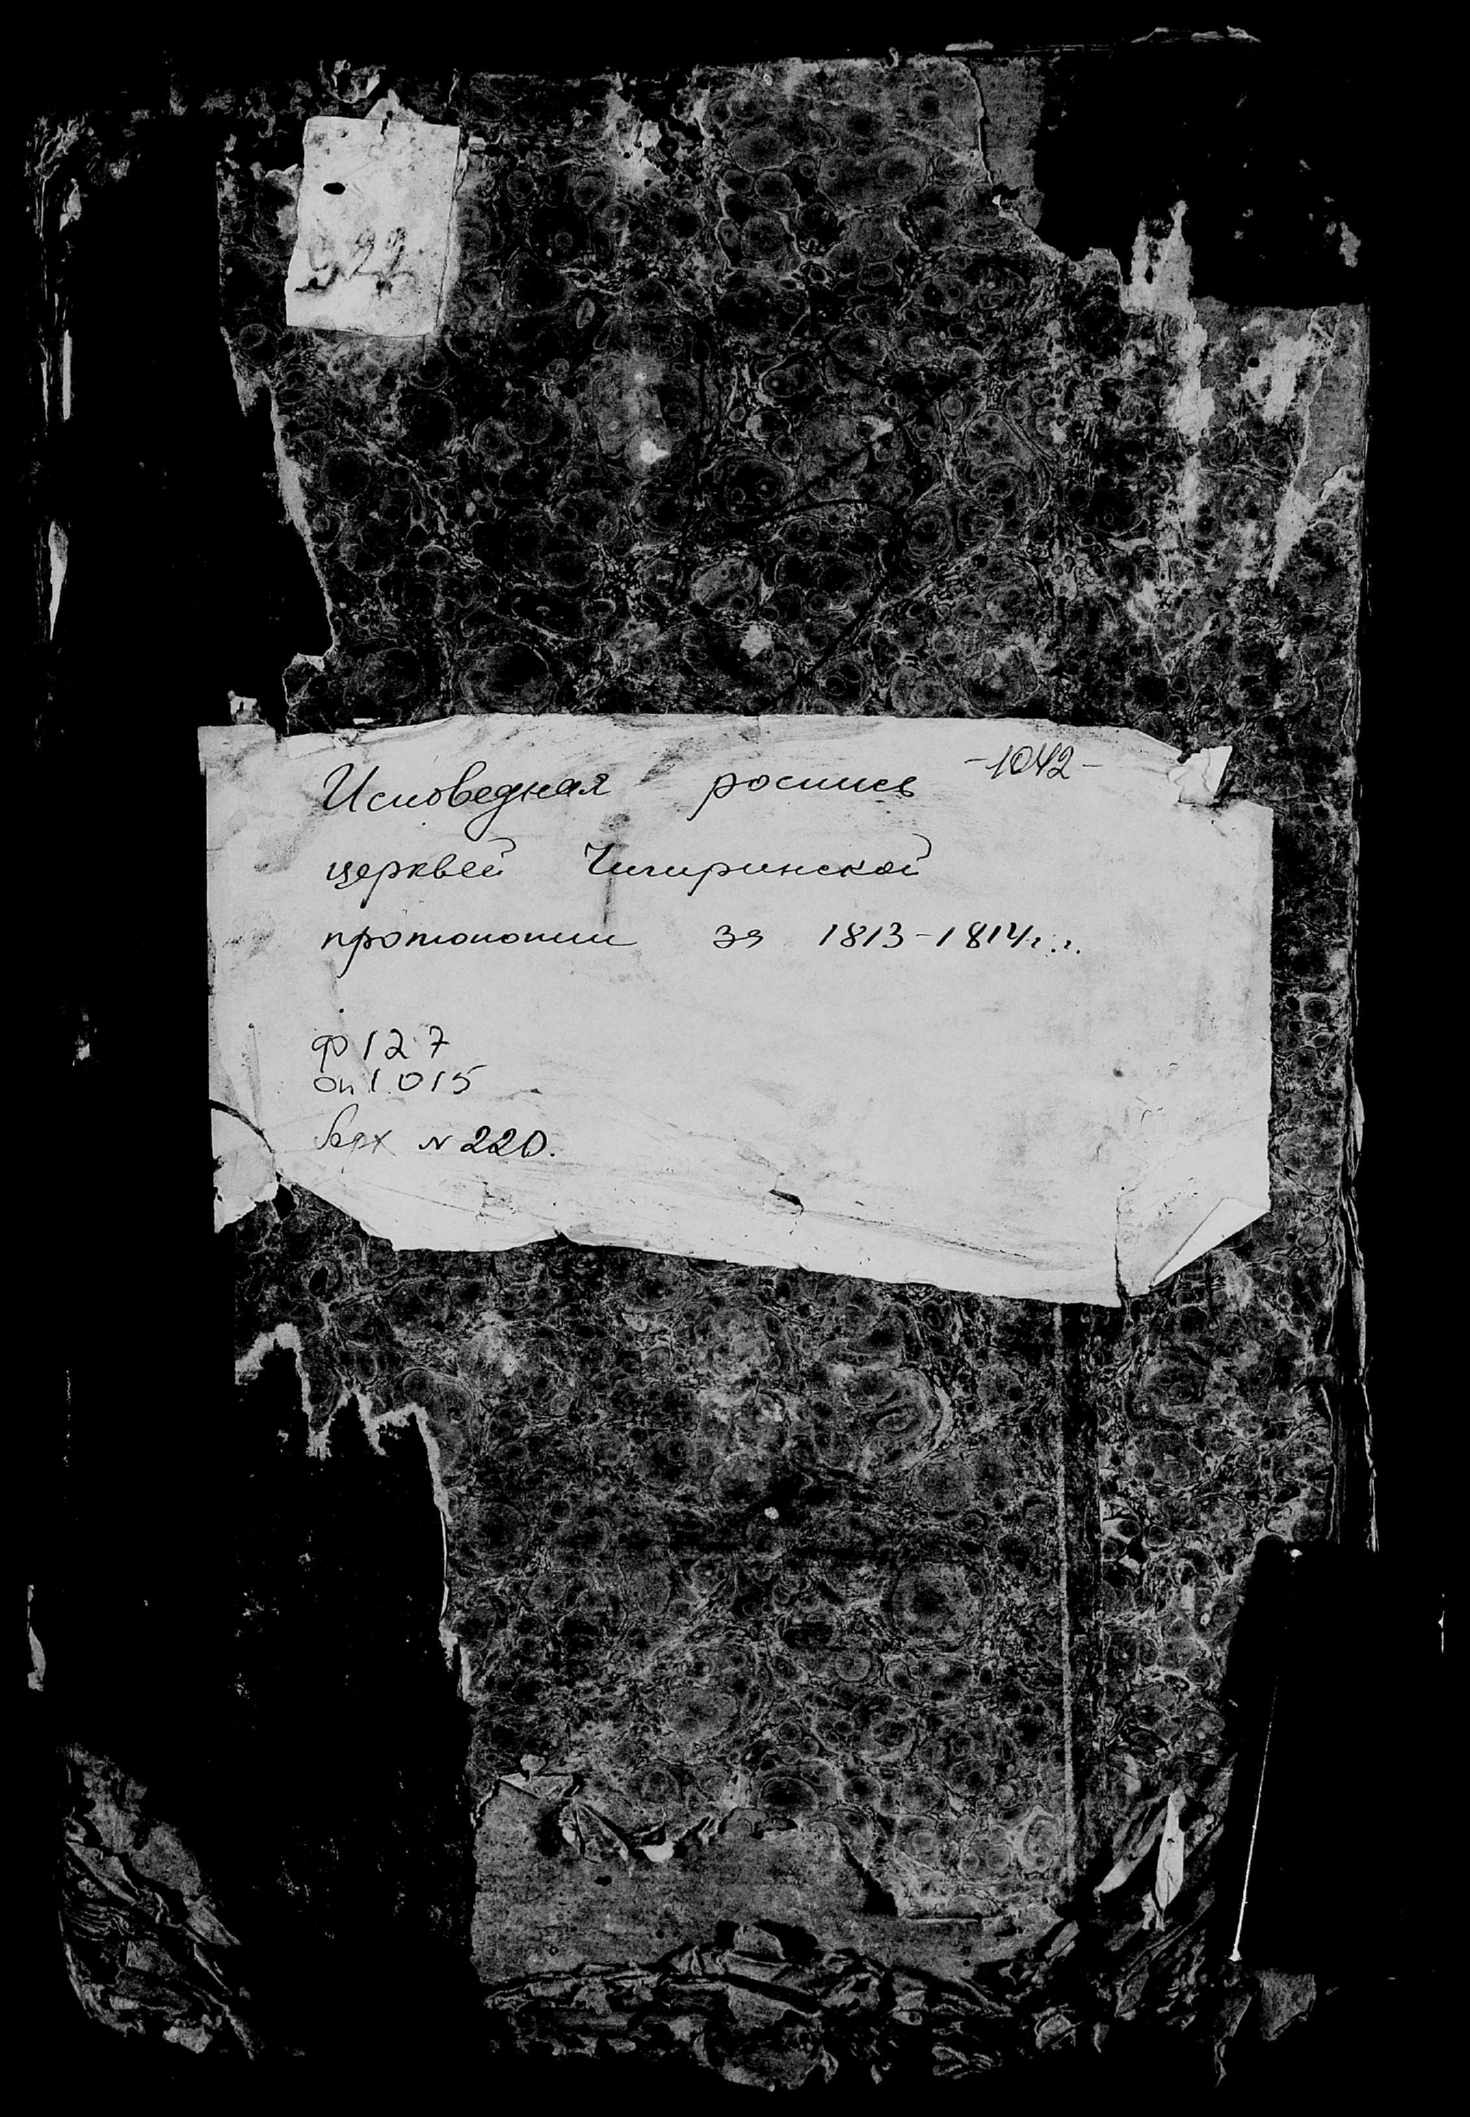 922
-1042-
Исповедная роспись
церквей Чигиринской
протопопии за 1813-1814 г.г.
ф 127
оп 1015
№ 220.